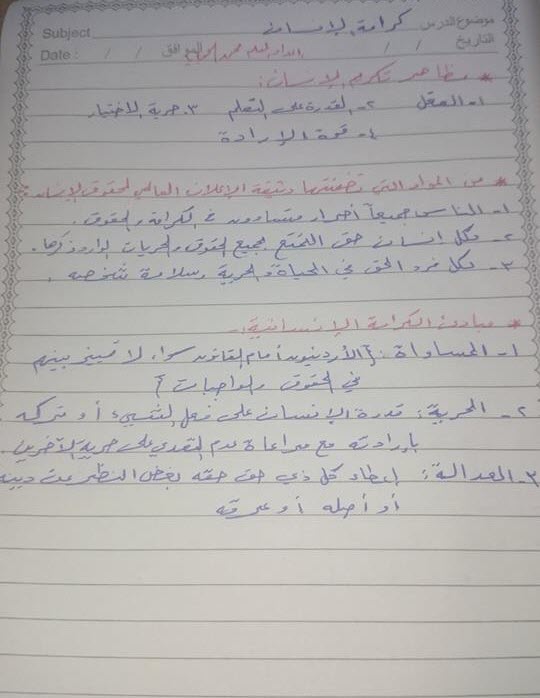 Subject كرامة الإنسان موضوع الدرس
Date : / / الموافق / / التاريخ
إعداد المعلم محمد
* مظاهر تكريم الإنسان:
١- العقل ٢- القدرة على التعلم ٣- حرية الاختيار
٤- قوة الإرادة
* من المواد التي تضمنتها وثيقة الإعلان العالمي لحقوق الإنسان:
١- الناس جميعاً أحرار متساوون في الكرامة والحقوق.
٢- ولكل إنسان حق التمتع بجميع الحقوق والحريات الوارد ذكرها.
٣- لكل فرد الحق في الحياة والحرية وسلامة شخصه.
* مبادئ الكرامة الإنسانية:-
١- المساواة: {الأردنيون أمام القانون سواء لا تمييز بينهم
في الحقوق والواجبات}
٢- الحرية: قدرة الإنسان على فعل الشيء أو تركه
بإرادته مع مراعاة عدم التعدي على حرية الآخرين.
٣- العدالة: إعطاء كل ذي حق حقه بغض النظر عن دينه
أو أصله أو عرقه